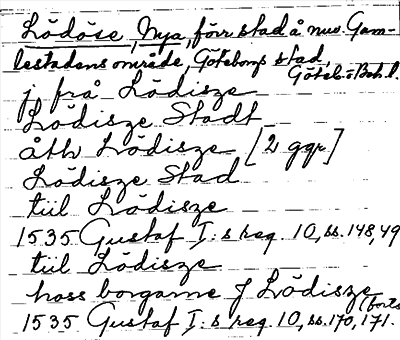 Lödöse, Nya, förr stad å nuv. Gam-
lestadens område, Göteborgs stad,
Göteb. o Boh. l.
j frå Lödisze
Lödisze Stadt
åth Lödisze [2 ggr]
Lödisze Stad
tiil Lödisze
1535 Gustaf I:s reg. 10, ss. 148, 49
tiil Lödisze
hoss borgarne j Lödisze
(forts
1535 Gustaf I:s reg. 10, ss. 170, 171.